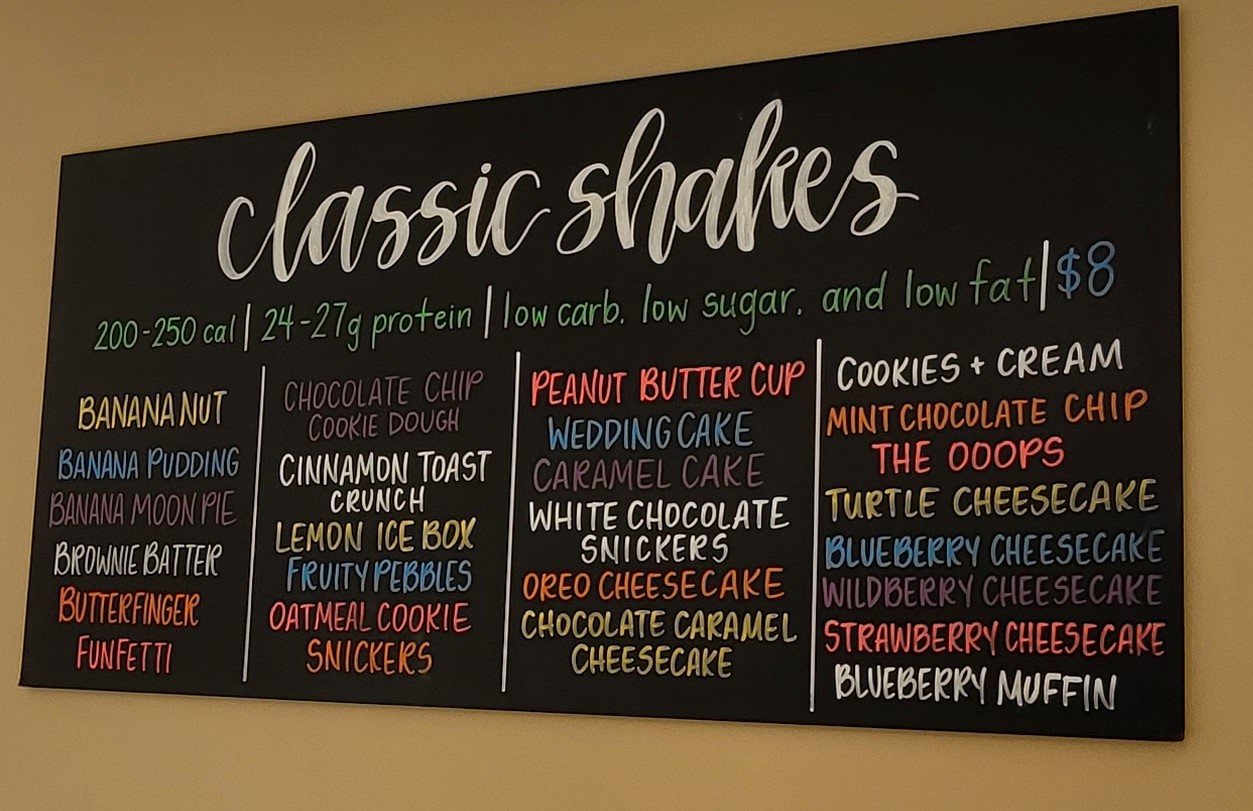 classic shakes
200-250 cal | 24-27g protein | low carb. low sugar. and low fat | $8
BANANA NUT
BANANA PUDDING
BANANA MOON PIE
BROWNIE BATTER
BUTTERFINGER
FUNFETTI
CHOCOLATE CHIP
COOKIE DOUGH
CINNAMON TOAST
CRUNCH
LEMON ICE BOX
FRUITY PEBBLES
OATMEAL COOKIE
SNICKERS
PEANUT BUTTER CUP
WEDDING CAKE
CARAMEL CAKE
WHITE CHOCOLATE
SNICKERS
OREO CHEESECAKE
CHOCOLATE CARAMEL
CHEESECAKE
COOKIES + CREAM
MINT CHOCOLATE CHIP
THE OOOPS
TURTLE CHEESECAKE
BLUEBERRY CHEESECAKE
WILDBERRY CHEESECAKE
STRAWBERRY CHEESECAKE
BLUEBERRY MUFFIN